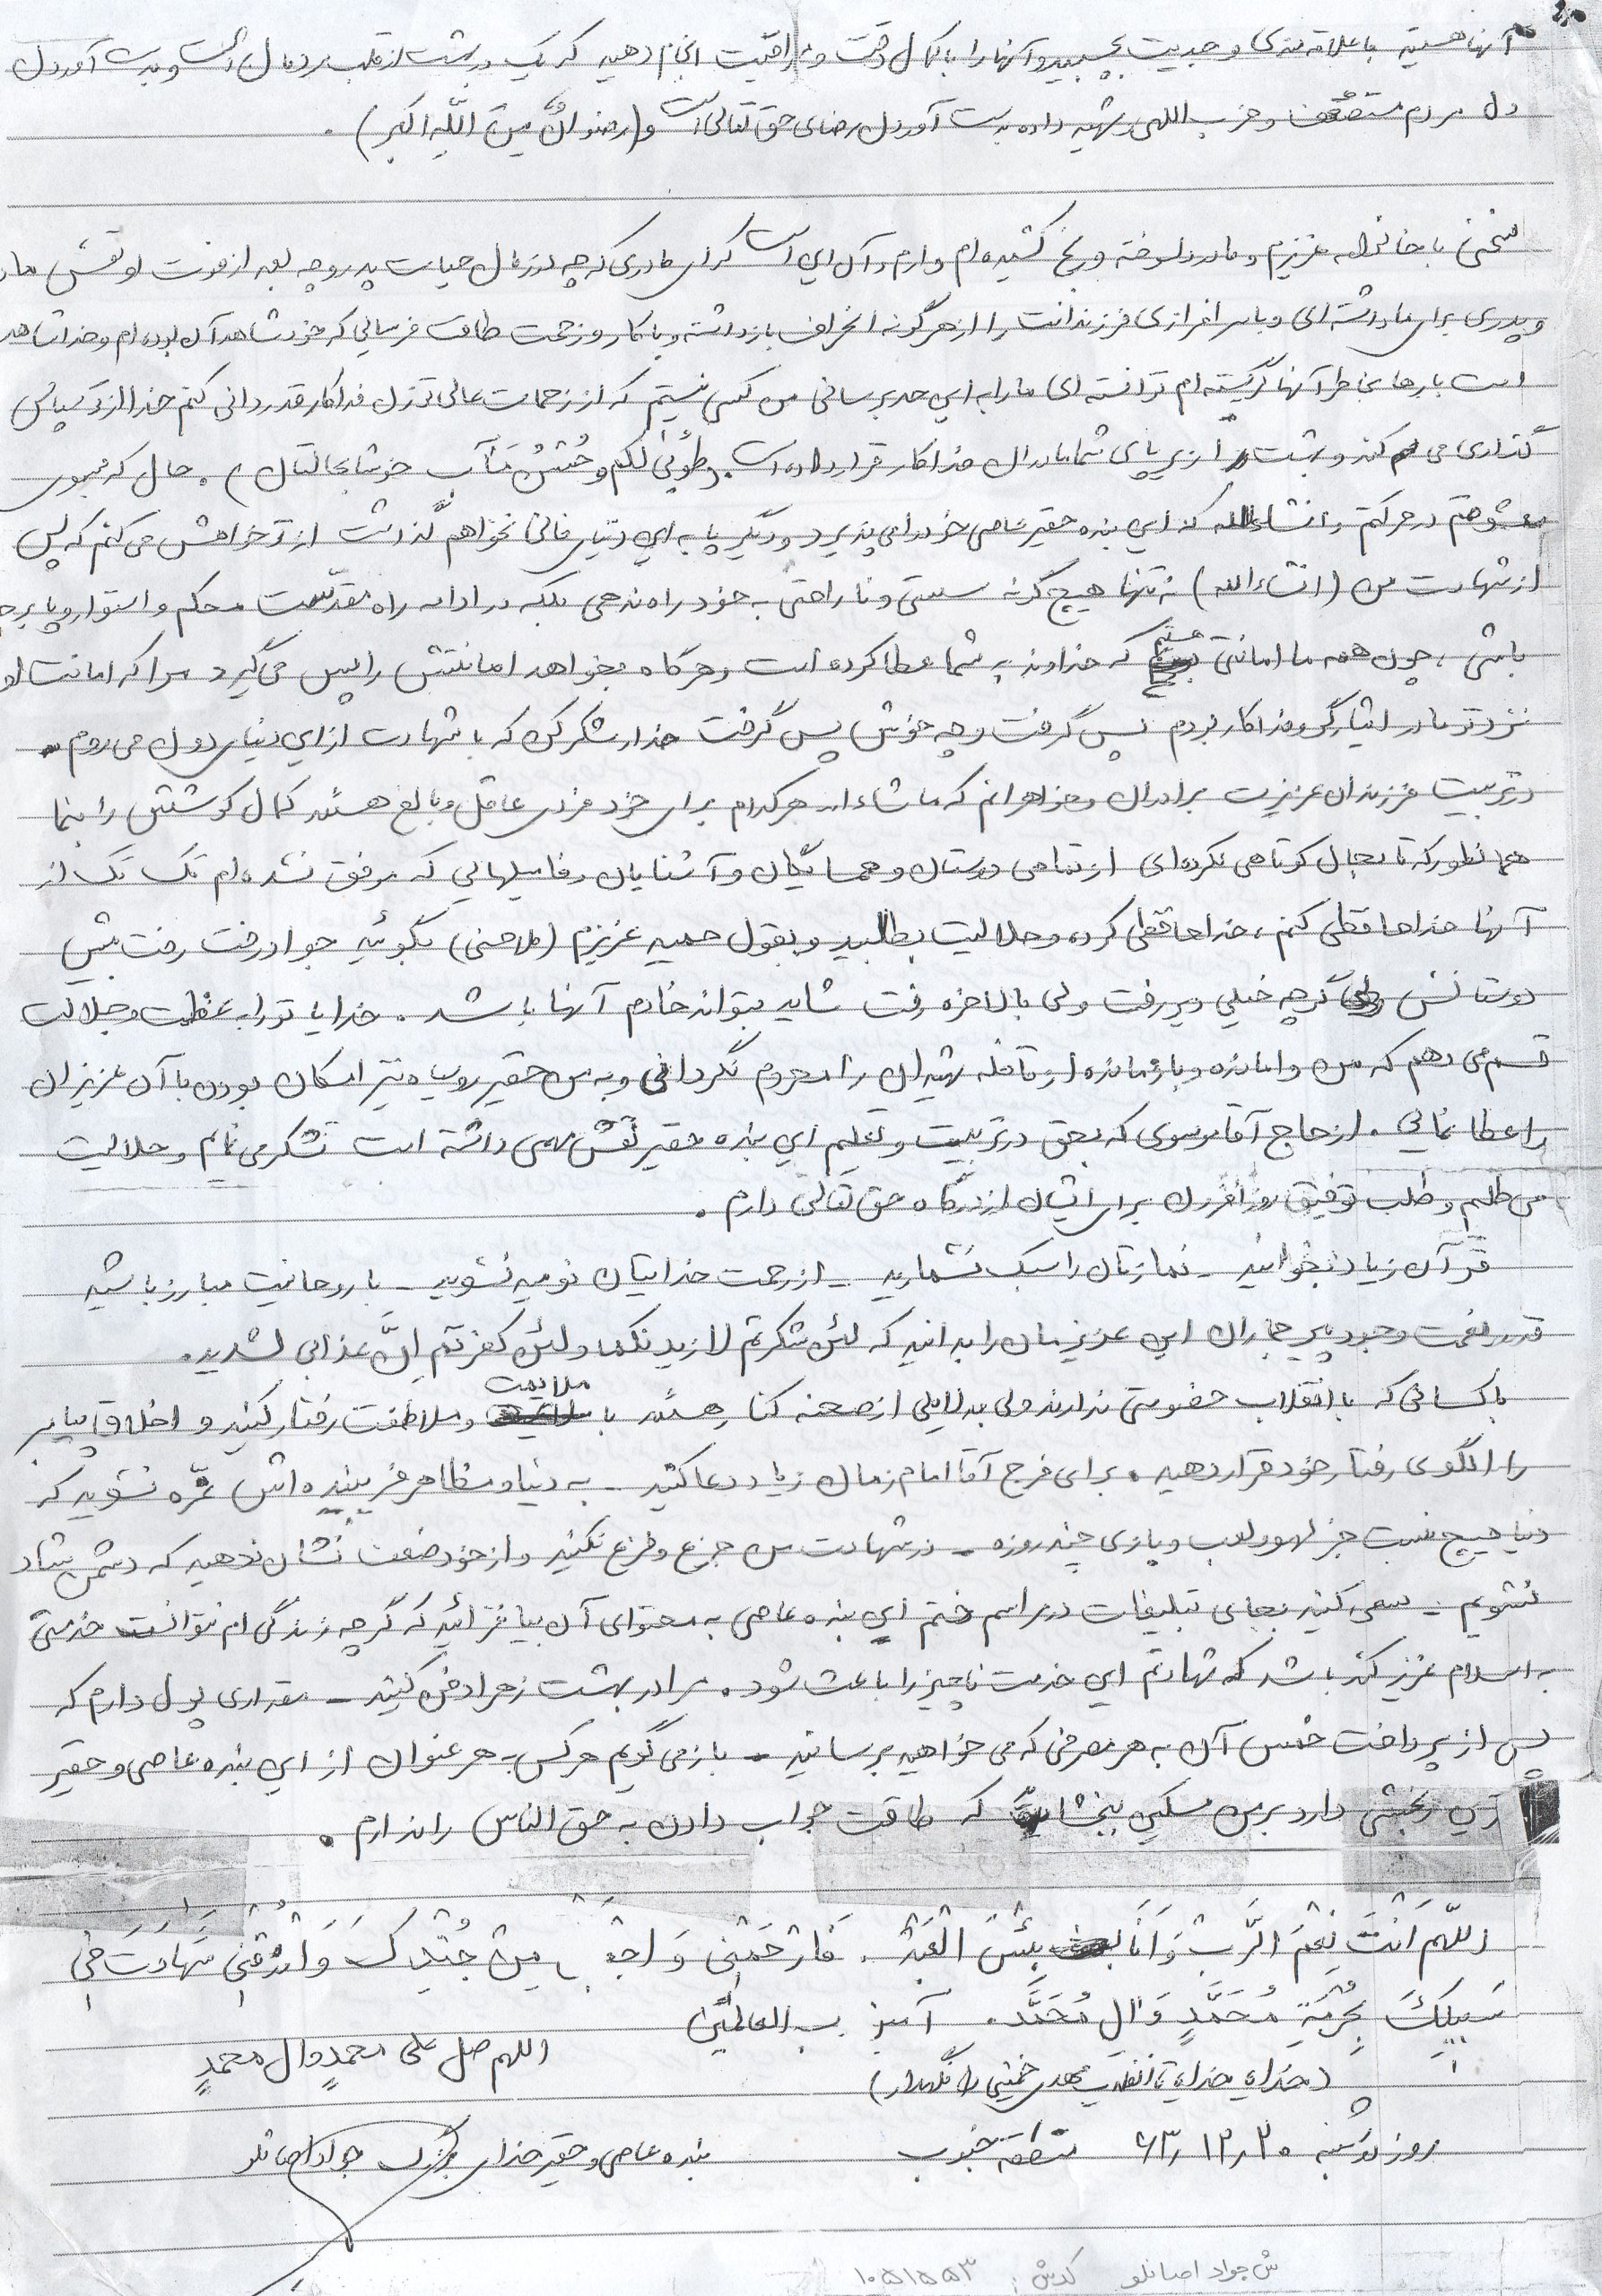 آنها هستید با علاقه‌مندی و جدیت بچسبید و آنها را با کمال دقت و ظرافت انجام دهید که یک در بهشت از قلب مردمان است و بدست آوردن
دل مردم مستضعف و حزب اللهی و شهید داده بدست آوردن رضای حق تعالی است و (رضوانٌ مِنَ اللّهِ اکبر) .
سخنی با خانواده عزیزم و مادر دلسوخته و رنج کشیده‌ام دارم و آن این است که ای مادری که چه در زمان حیات پدر و چه بعد از فوت او نقش مادر
و پدری برای ما داشته‌ای و با سرافرازی فرزندانت را از هرگونه انحراف بازداشته و با کار و زحمت طاقت فرسایی که خود شاهد آن بوده‌ام و خدا شاهد
است بارها بخاطر آنها گریسته‌ام توانسته‌ای ما را به این حد برسانی من کسی نیستم که از زحمات عالی تو زن فداکار قدردانی کنم خدا از تو سپاس
گذاری می کند و بهشت را زیر پای شما مادران فداکار قرار داده است. (طُوبیٰ لکم و حُسْنُ مَآب خوشا بحالتان) . حال که بسوی
معشوقم در حرکتم و انشاءالله که این بنده حقیر عاصی خود را می پذیرد و دیگر پا به این دنیای فانی نخواهم گذاشت از تو خواهش می کنم که پس
از شهادت من (انشاءالله) نه تنها هیچ گونه سستی و ناراحتی به خود راه ندهی بلکه در ادامه راه مقدّست محکم و استوار و پا برجا
باشی ، چون همه ما امانتی هستیم که خداوند به شما عطا کرده است و هرگاه بخواهد امانتش را پس می گیرد مرا که امانت او
نزد تو مادر ایثارگر و فداکار بودم پس گرفت و چه خوش پس گرفت خدا را شکر کن که با شهادت از این دنیای دون می روم .
در تربیت فرزندان عزیزت برادران و خواهرانم که ماشاءاله هرکدام برای خود فردی عاقل و بالغ هستند کمال کوشش را بنما
همانطور که تا بحال کوتاهی نکرده‌ای از تمامی دوستان و همسایگان و آشنایان و فامیلهایی که موفق نشده‌ام تک تک از
آنها خداحافظی کنم ، خداحافظی کرده و حلالیت بطلبید و بقول حمید عزیزم (ملاحسنی) بگوئید جواد رفت رفت پیش
دوستانش گرچه خیلی دیر رفت ولی بالاخره رفت شاید بتواند خادم آنها باشد . خدایا تو را به عظمت و جلالت
قسم می دهم که من وامانده و بازمانده از قافله شهیدان را محروم نگردانی و به من حقیر روسیاه نیز امکان بودن با آن عزیزان
را عطا نمایی . از حاج آقا موسوی که بحق در تربیت و تعلیم این بنده حقیر نقش مهمی داشته است تشکر می نمایم و حلالیت
می طلبم و طلب توفیق روزافزون برای ایشان از درگاه حق تعالی دارم .
قرآن زیاد بخوانید – نمازتان را سبک نشمارید – از رحمت خدایتان نومید نشوید – با روحانیت مبارز باشید
قدر نعمت وجود پیر جماران این عزیزمان را بدانید که لئن شکرتم لازیدنکم ولئن کفرتم اِنَّ عذابی لشدید.
با کسانی که با انقلاب خصومتی ندارند ولی بدلایلی از صحنه کنار هستند با ملایمت و ملاطفت رفتار کنید و اخلاق پیامبر
را الگوی رفتار خود قرار دهید . برای فرج آقا امام زمان زیاد دعا کنید – به دنیا و مظاهر فریبنده‌اش غرّه نشوید که
دنیا هیچ نیست جز لهو و لعب و بازی چند روزه – در شهادت من جزع و فزع نکنید و از خود ضعف نشان ندهید که دشمن شاد
نشویم – سعی کنید بجای تبلیغات در مراسم ختم این بنده عاصی به محتوای آن بیافزائید که گرچه زندگی‌ام نتوانست خدمتی
به اسلام عزیز کند باشد که شهادتم این خدمت ناچیز را باعث شود . مرا در بهشت زهرا دفن کنید – مقداری پول دارم که
پس از پرداخت خمس آن به هر مصرفی که می خواهید برسانید – باز می گویم هرکس به هر عنوان از این بنده عاصی و حقیر
ترین رنجشی دارد بر من مسکین ببخشاید که طاقت جواب دادن به حق الناس را ندارم .
اَللّهُمَّ اَنْتَ نِعْمَ الرَّبُّ وَ اَنَا بِئْسَ الْعَبْدُ . فَارْحَمْنِی وَ اجْعَلْنِی مِنْ جُنْدِکَ وَ ارْزُقْنِی شَهَادَتَ فِی
سَبِیلِکَ بِحُرْمَةِ مُحَمَّدٍ وَ آلِ مُحَمَّد . آمین رب العالمین
اللهم صل علی محمدٍ وال محمدٍ
(خدایا خدایا تا انقلاب مهدی خمینی را نگهدار)
روز دوشنبه ۶۳٫۱۲٫۲۰ منطقه جنوب
بنده عاصی و حقیر خدای بزرگ جواد اصانلو
ش جواد اصانلو کدش : ۱۰۵۱۵۵۳